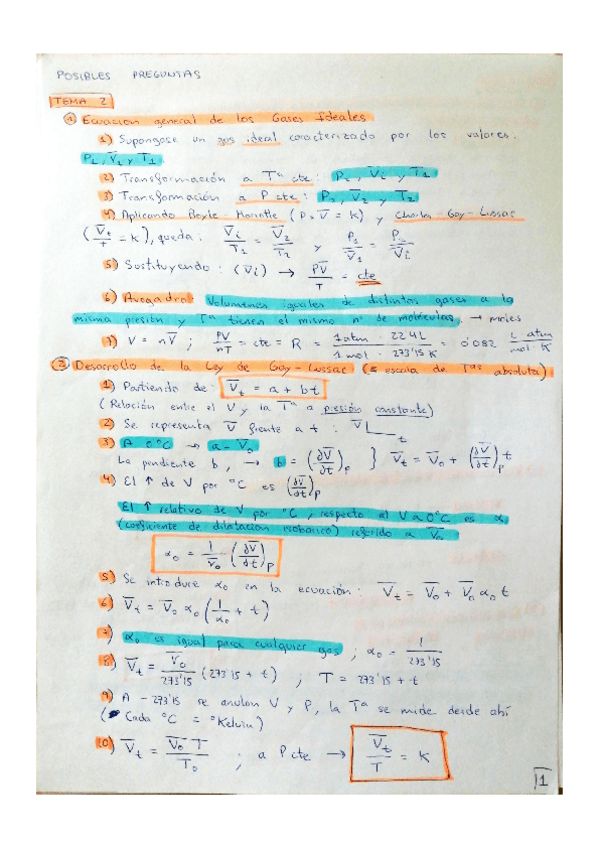 POSIBLES PREGUNTAS
TEMA 2
1 Ecuacion general de los Gases Ideales
1) Supongase un gas ideal caracterizado por los valores.
P₁, V̅₁ y T₁
2) Transformación a Tª cte: P₂, V̅i y T₁
3) Transformación a P cte: P₂, V̅₂ y T₂
4) Aplicando Boyle-Mariotte (P × V̅ = K) y Charles-Gay-Lussac
(V̅t/T = K), queda: V̅i/T₁ = V̅₂/T₂ y P₁/V̅₁ = P₂/V̅i
5) Sustituyendo: (V̅i) → PV̅/T = cte
6) Avogadro: Volumenes iguales de distintos gases a la
misma presión y Tª tienen el mismo nº de moléculas. → moles
7) V = nV̅ ; PV/nT = cte = R = 1 atm · 22'4 L/1 mol · 273'15 K = 0'082 L atm/mol · K
2 Desarrollo de la Ley de Gay-Lussac (escala de Tªs absoluta)
1) Partiendo de: V̅t = a + bt
(Relación entre el V y la Tª a presión constante)
2) Se representa V̅ frente a t: V̅ t
3) A 0ºC → a = V̅₀
La pendiente b, → b = (∂V̅/∂t)p } V̅t = V̅₀ + (∂V̅/∂t)p t
4) El ↑ de V por ºC es (∂V̅/∂t)p
El ↑ relativo de V por ºC, respecto al V a 0ºC es α
(coeficiente de dilatacion isobárico) referido a V̅₀
α₀ = 1/V̅₀ (∂V̅/∂t)p
5) Se introduce α₀ en la ecuación: V̅t = V̅₀ + V̅₀ α₀ t
6) V̅t = V̅₀ α₀ (1/α₀ + t)
7) α₀ es igual para cualquier gas ; α₀ = 1/273'15
8) V̅t = V̅₀/273'15 (273'15 + t) ; T = 273'15 + t
9) A - 273'15 se anulan V y P, la Tª se mide desde ahí
(Cada ºC = ºKelvin)
10) V̅t = V̅₀ T/T₀ ; a P cte → V̅t/T = K
1